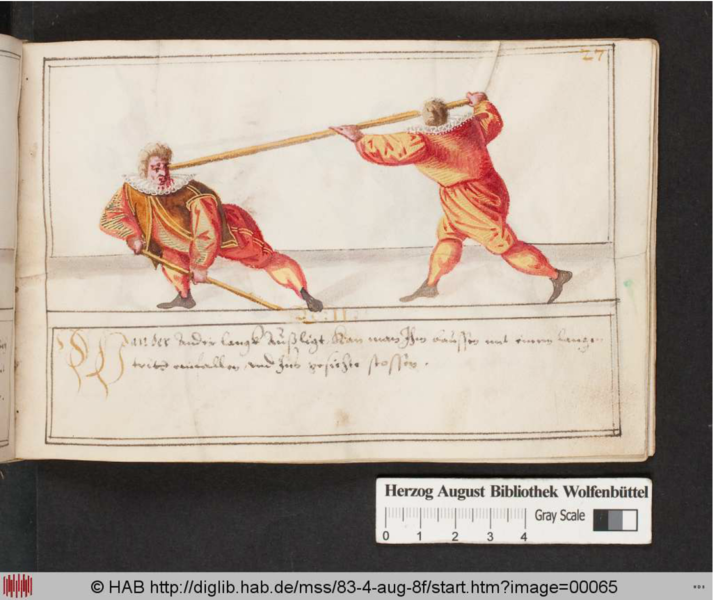 27
Wan der Ander langk außligt. Kan man Ihm aussen mit einem langen
tritt einfallen und Ins gesichte stossen.
Herzog August Bibliothek Wolfenbüttel
Gray Scale
0 1 2 3 4
© HAB http://diglib.hab.de/mss/83-4-aug-8f/start.htm?image=00065